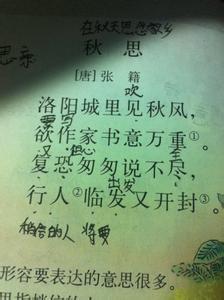 在秋天思念家乡
思亲
秋 思
[唐] 张 籍
吹
洛阳城里见秋风，
要写
欲作家书意万重①。
又 担心
复恐匆匆说不尽，
出发
行人②临发又开封③。
捎信的人 将要
形容要表达的意思很多。